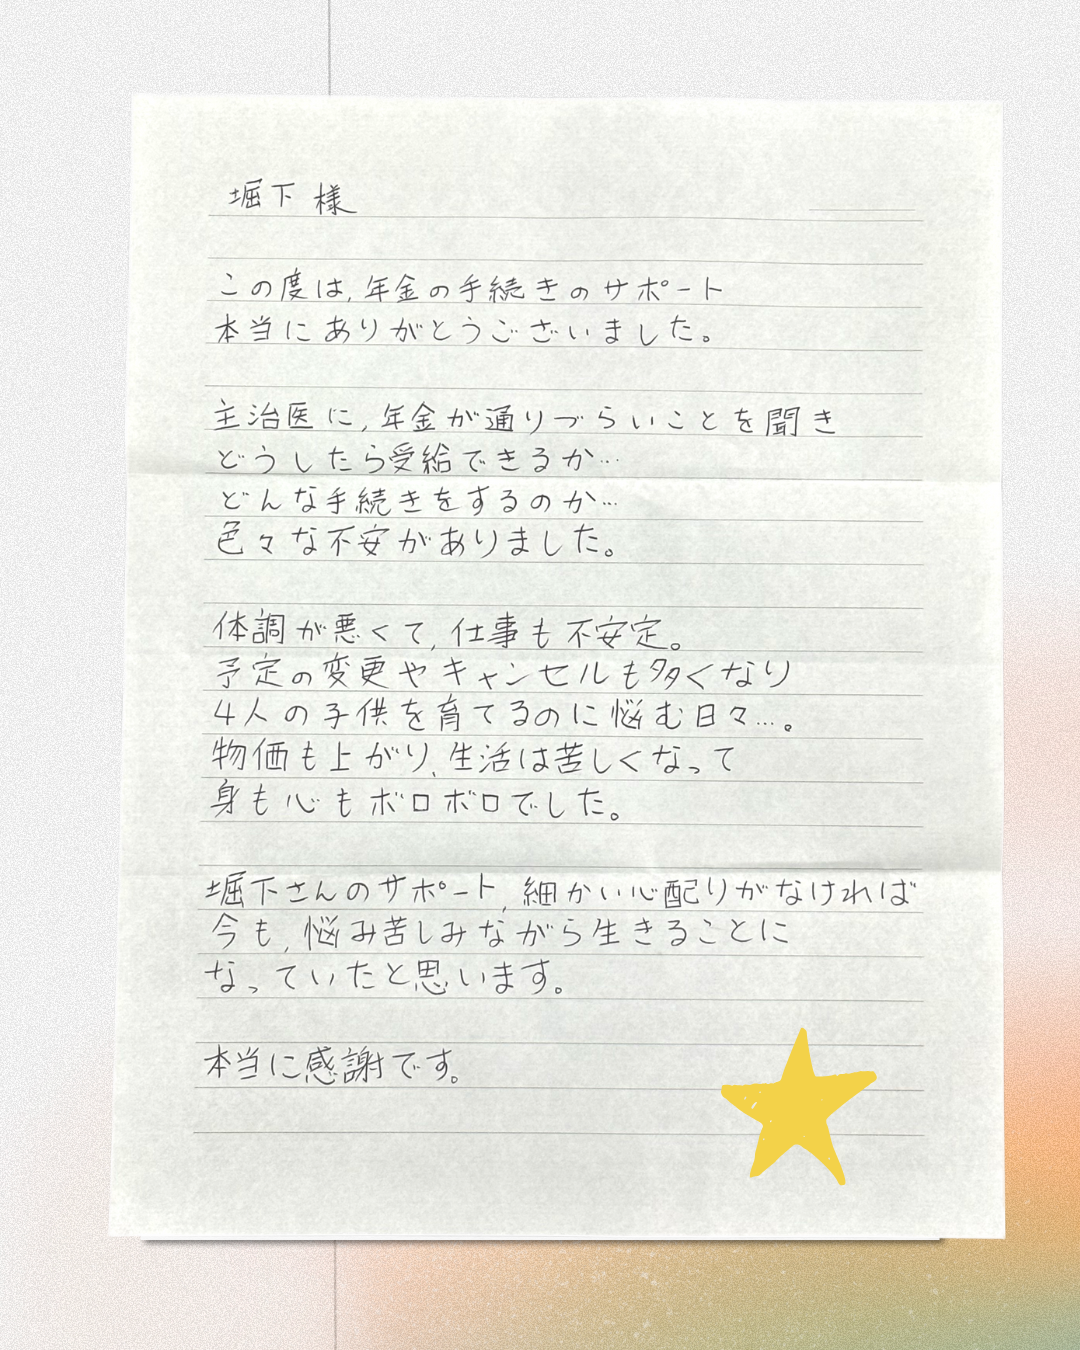 堀下 様
この度は,年金の手続きのサポート
本当にありがとうございました。
主治医に,年金が通りづらいことを聞き
どうしたら受給できるか…
どんな手続きをするのか…
色々な不安がありました。
体調が悪くて,仕事も不安定。
予定の変更やキャンセルも多くなり
4人の子供を育てるのに悩む日々…。
物価も上がり,生活は苦しくなって
身も心もボロボロでした。
堀下さんのサポート,細かい心配りがなければ
今も,悩み苦しみながら生きることに
なっていたと思います。
本当に感謝です。